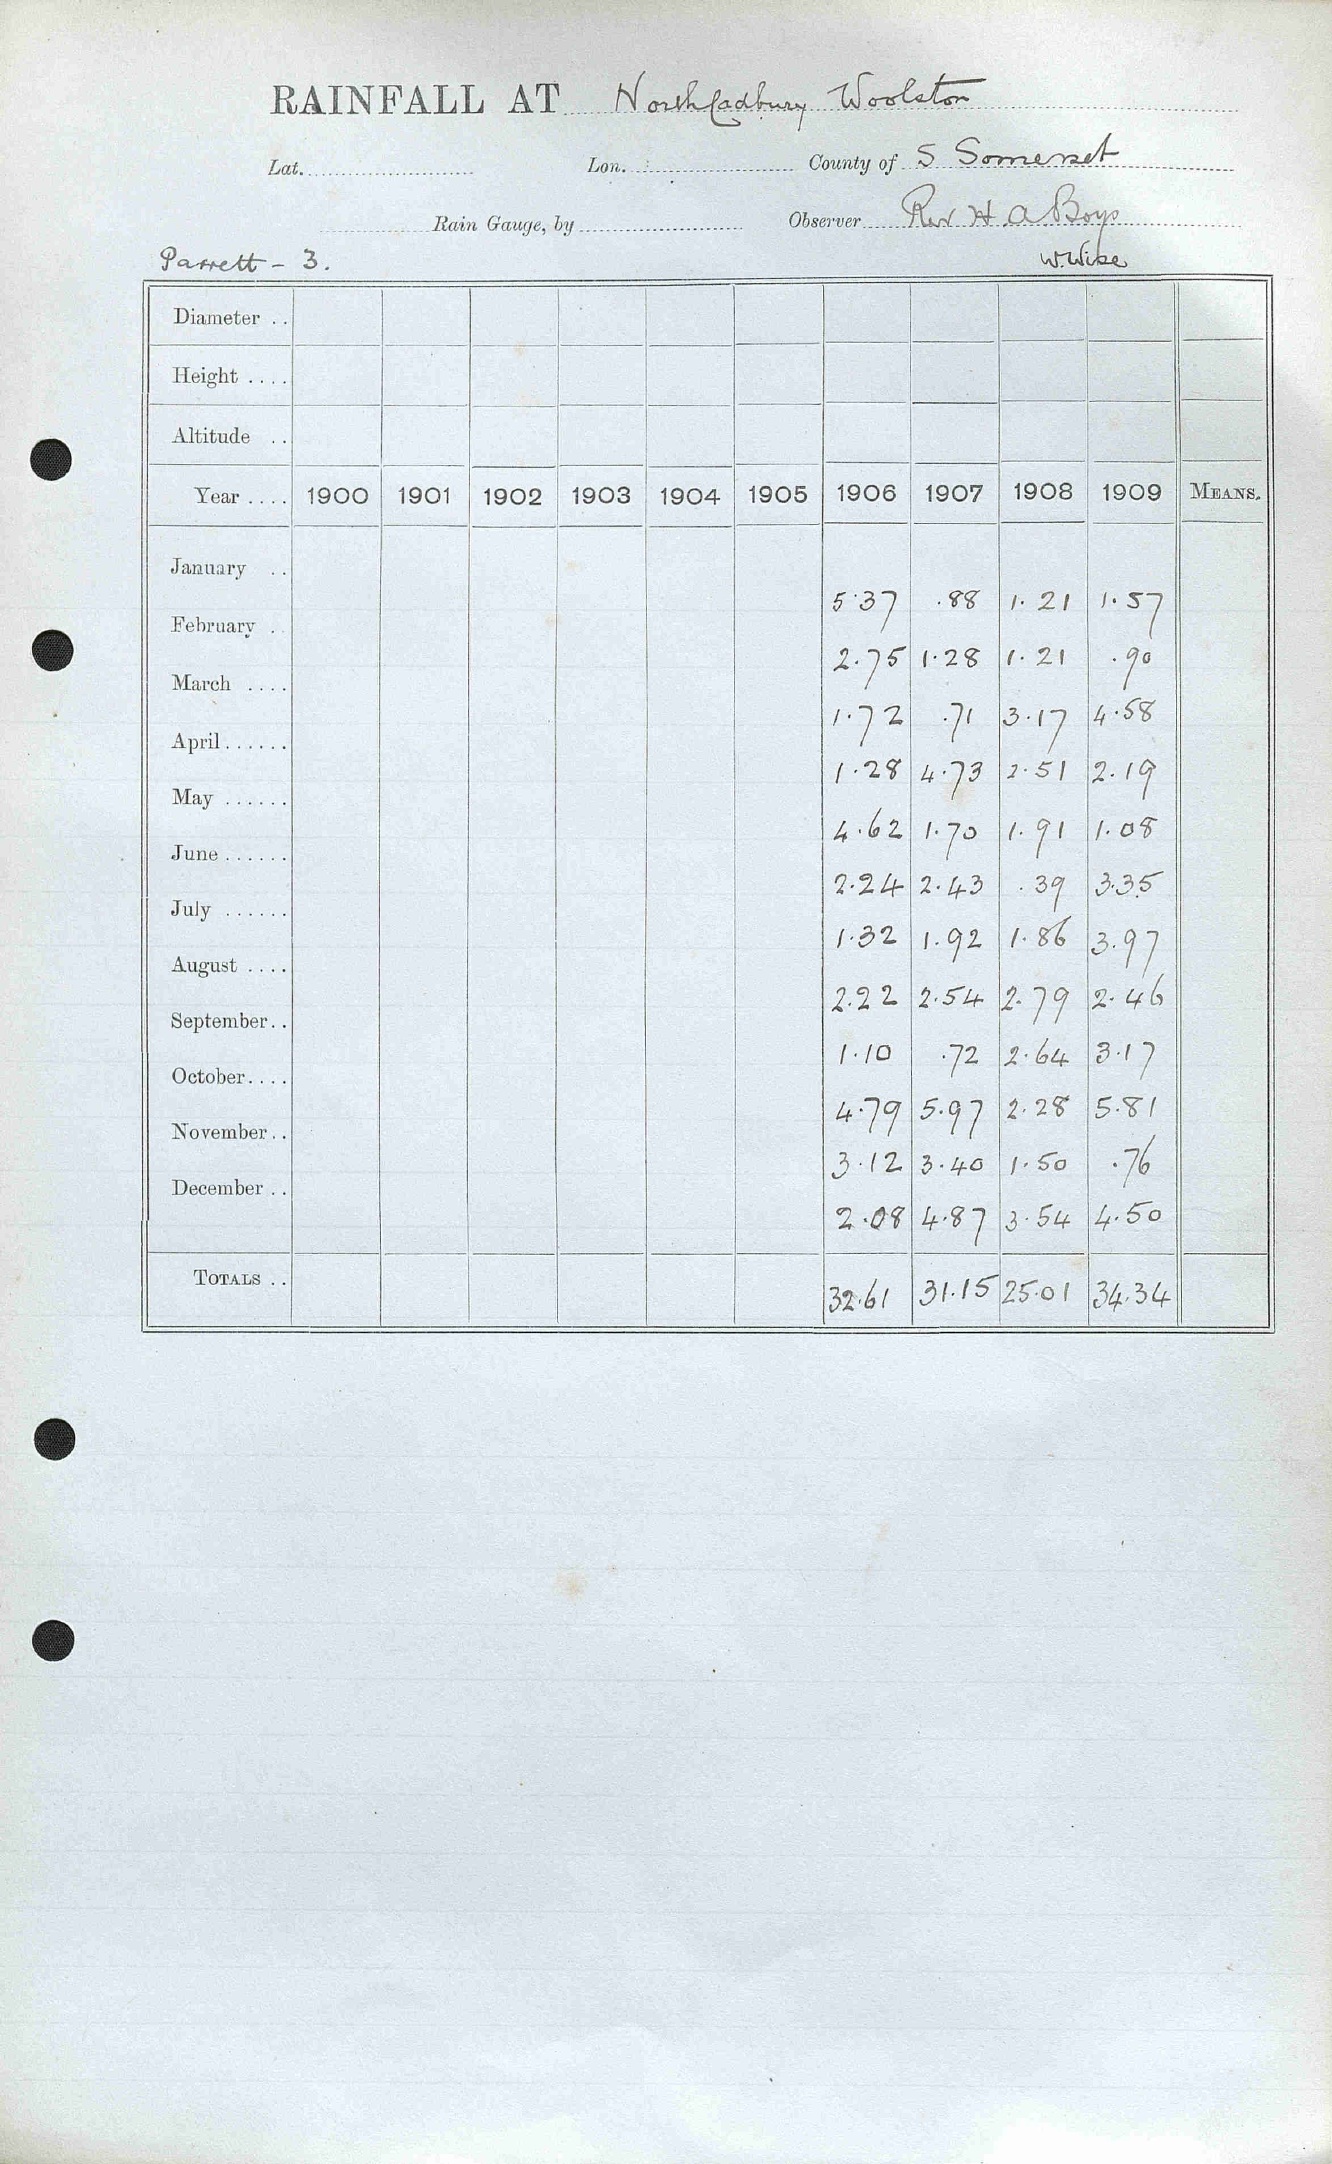 RAINFALL AT North Cadbury Woolston
Lat. Lon. County of S Somerset
Rain Gauge, by Observer Rev H A Boys
Parrett - 3. W. Wise
Diameter ..
Height ....
Altitude ..
Year .... 1900 1901 1902 1903 1904 1905 1906 1907 1908 1909 MEANS.
January .. 5.37 .88 1.21 1.57
February .. 2.75 1.28 1.21 .90
March .... 1.72 .71 3.17 4.58
April...... 1.28 4.73 2.51 2.19
May ...... 4.62 1.70 1.91 1.08
June ...... 2.24 2.43 .39 3.35
July ...... 1.32 1.92 1.86 3.97
August .... 2.22 2.54 2.79 2.46
September.. 1.10 .72 2.64 3.17
October.... 4.79 5.97 2.28 5.81
November.. 3.12 3.40 1.50 .76
December .. 2.08 4.87 3.54 4.50
TOTALS .. 32.61 31.15 25.01 34.34